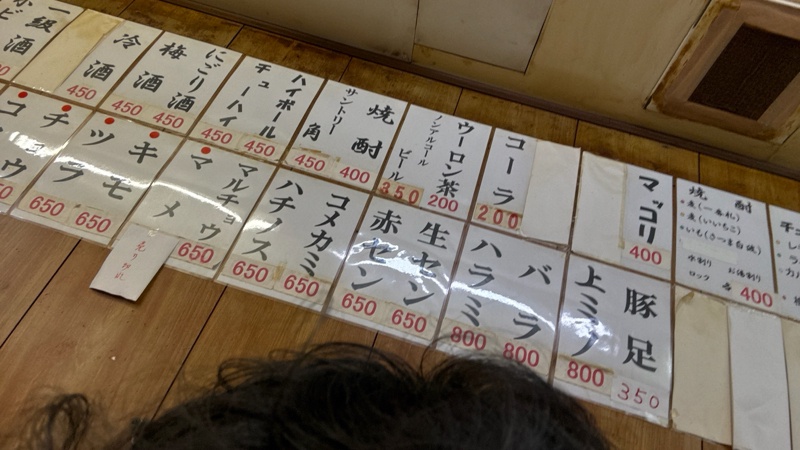 一級酒
冷酒
450
梅酒
450
にごり酒
450
チューハイ
450
ハイボール
450
サントリー角
450
焼酎
400
ノンアルコールビール
350
ウーロン茶
200
コーラ
200
マッコリ
400
焼酎
・麦(いいちこ)
水割り
お湯割り
ロック
400
ツラ
650
チ
650
キモ
マメ
売り切れ
マルチョウ
650
ハチノス
650
コメカミ
650
赤セン
650
生セン
650
ハラミ
800
バラ
800
上ミノ
800
豚足
350